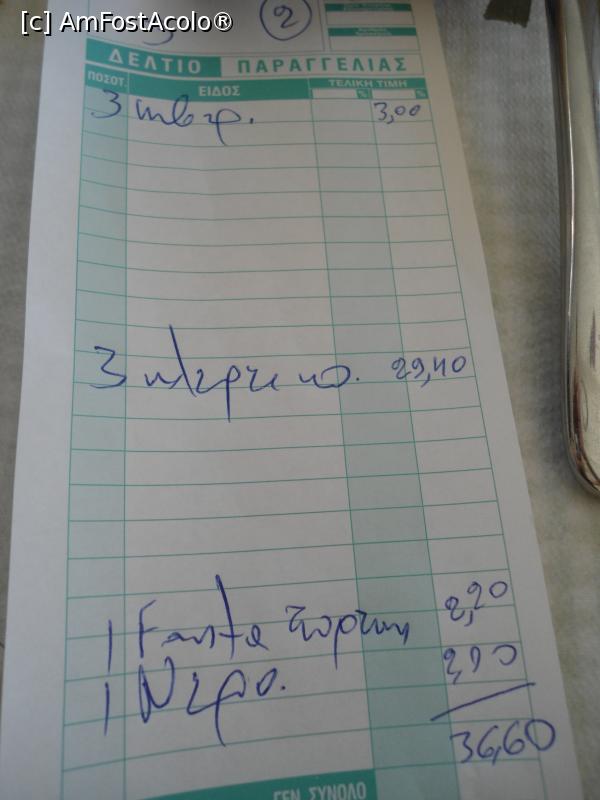 [c] AmFostAcolo®
2
ΔΕΛΤΙΟ ΠΑΡΑΓΓΕΛΙΑΣ
ΠΟΣΟΤ. ΕΙΔΟΣ ΤΕΛΙΚΗ ΤΙΜΗ
% %
3 κουβερ. 3,00
3 29,40
1 Fanta πορτοκ 2,20
1 Νερο. 2,00
36,60
ΓΕΝ. ΣΥΝΟΛΟ